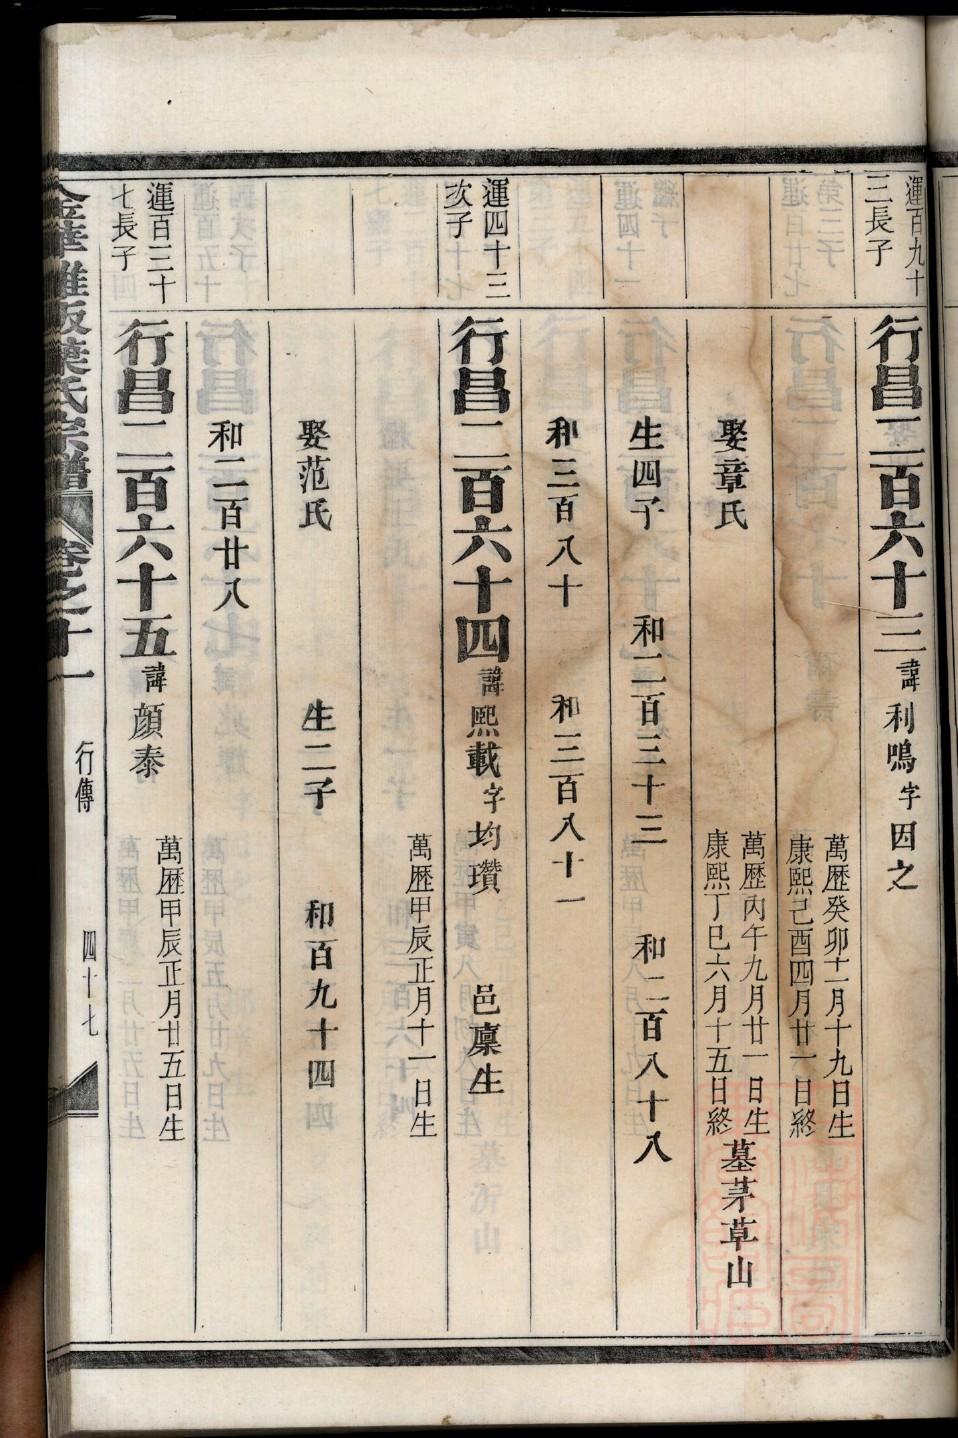 運百九十
三長子
行昌二百六十三諱利鳴字因之
萬歷癸卯十一月十九日生
康熙己酉四月廿一日終
娶章氏
萬歷丙午九月廿一日生
康熙丁巳六月十五日終
墓茅草山
生四子 和二百三十三 和二百八十八
和三百八十 和三百八十一
運四十三
次子
行昌二百六十四諱熙載字均瓚 邑廩生
萬歷甲辰正月十一日生
娶范氏 生二子 和百九十四
和二百廿八
運百三十
七長子
行昌二百六十五諱顏泰
萬歷甲辰正月廿五日生
葉氏宗譜 卷之十一 行傳 四十七